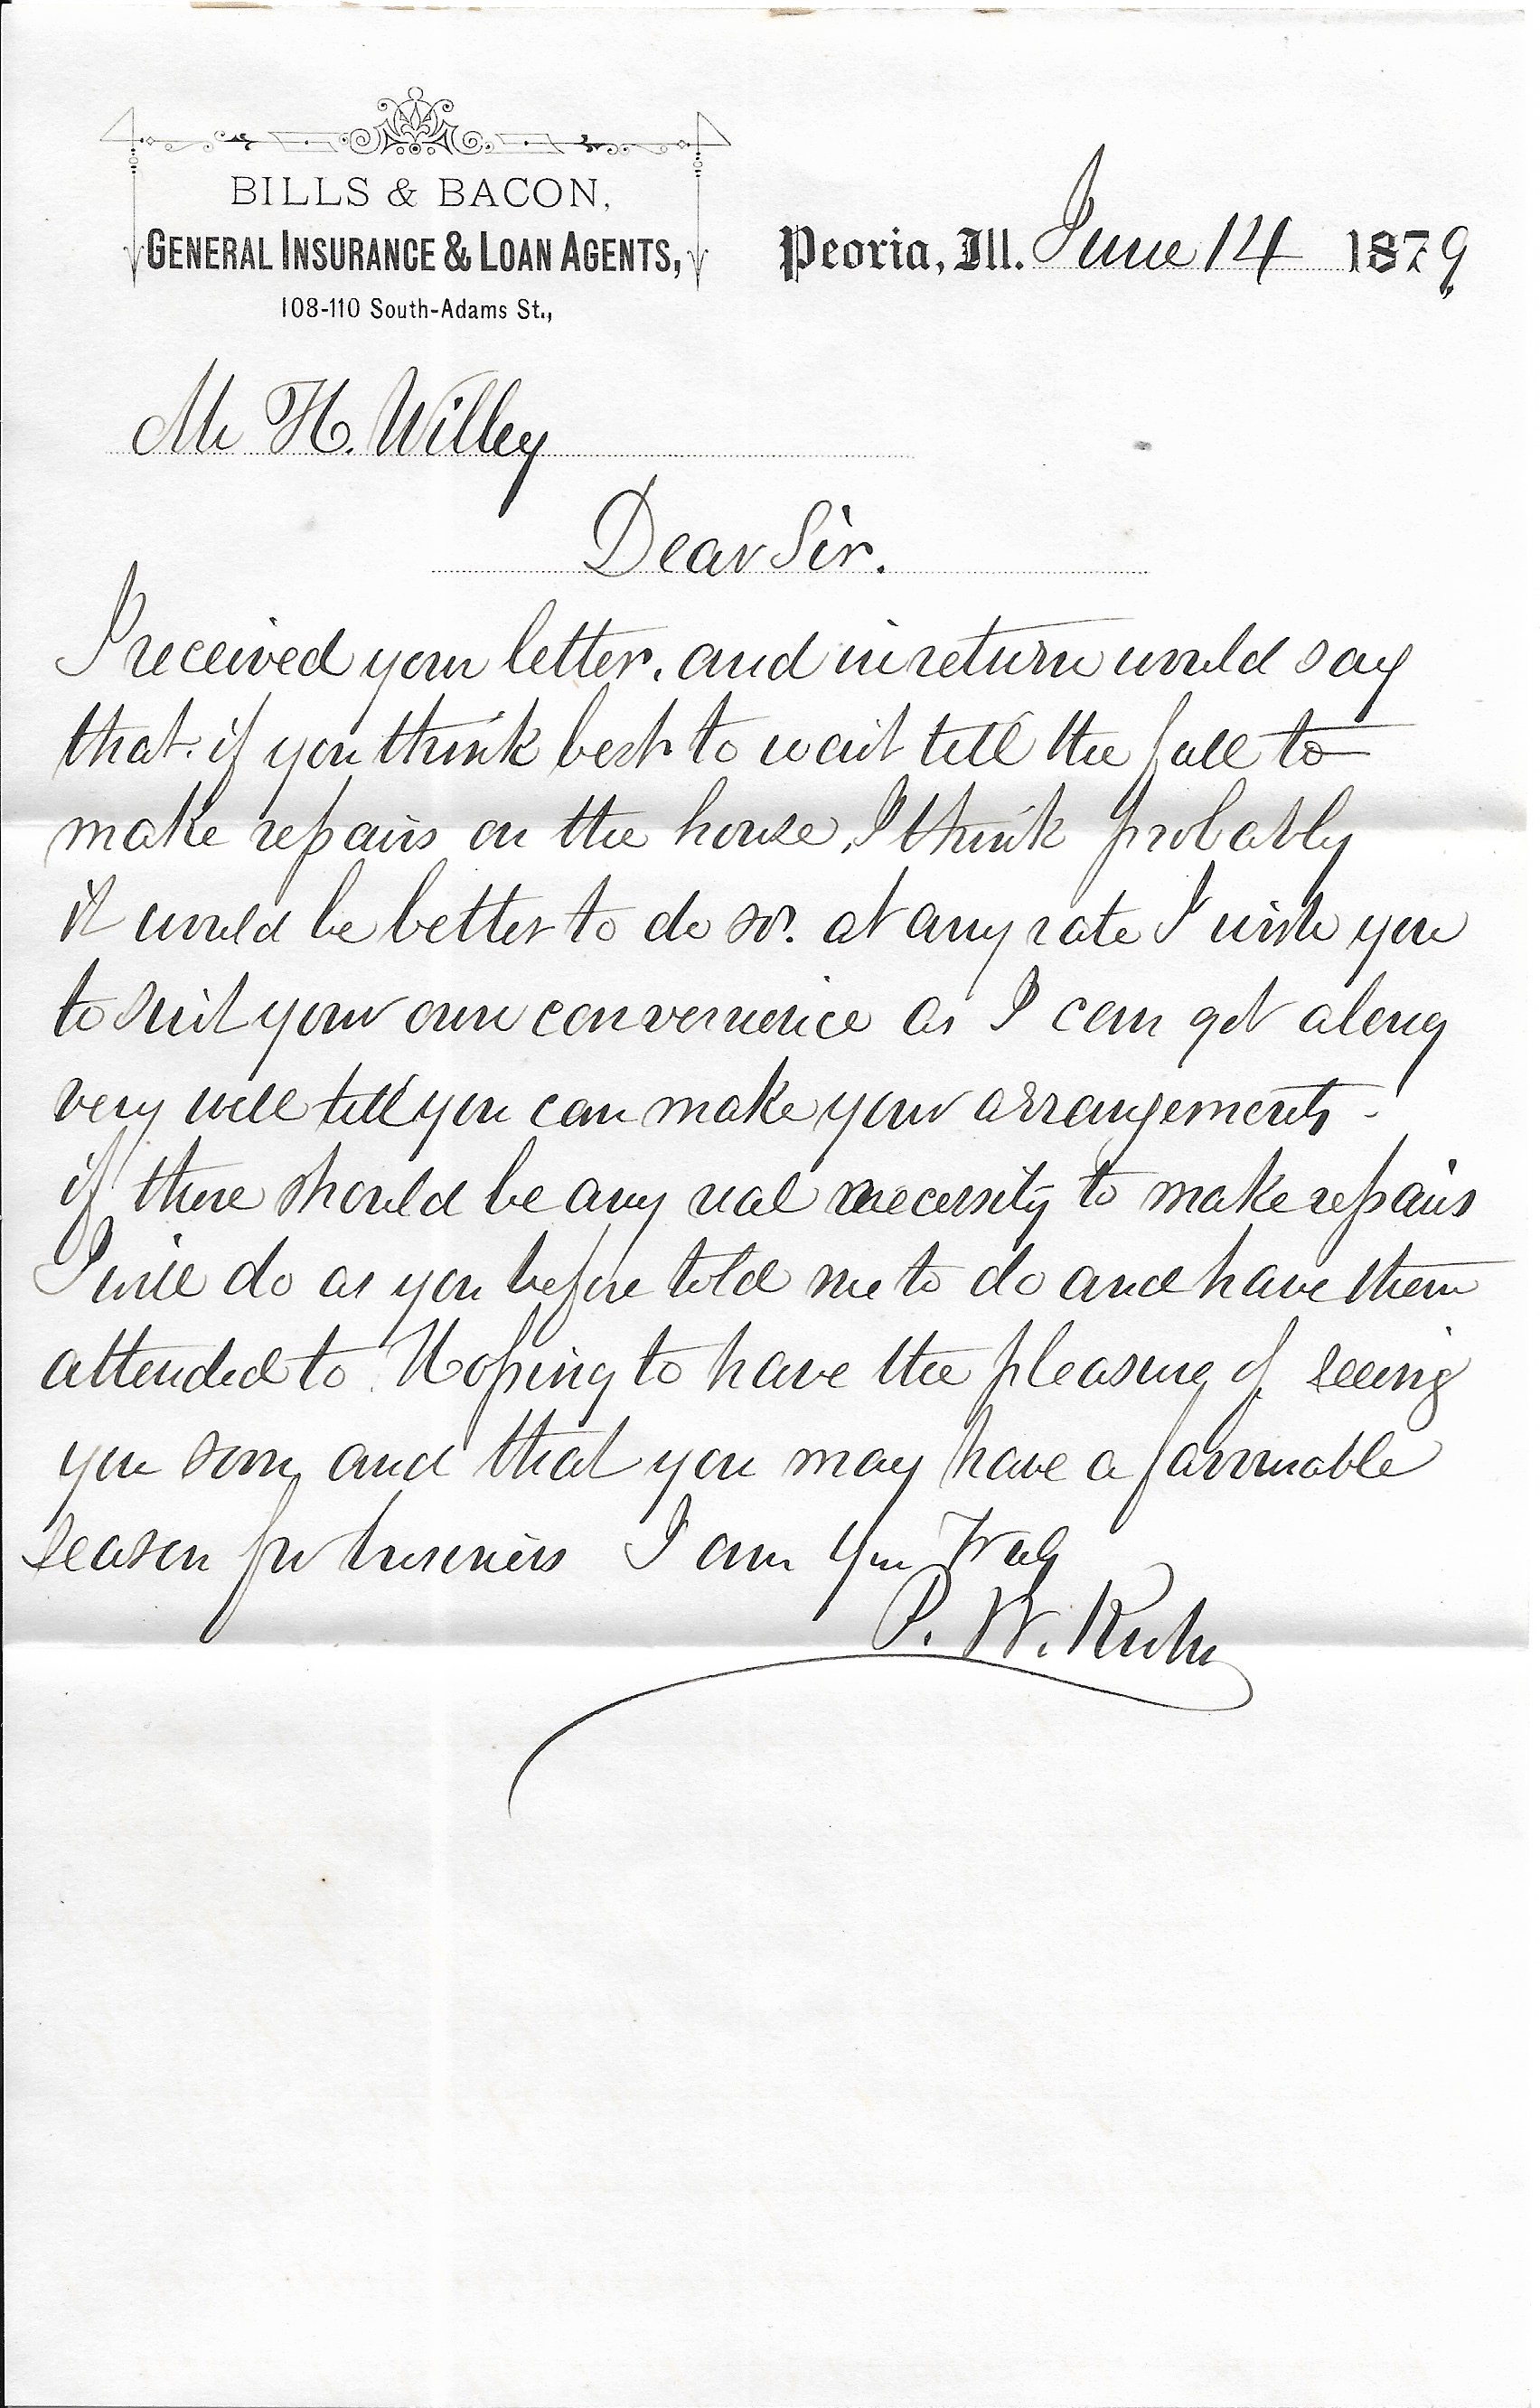 BILLS & BACON,
GENERAL INSURANCE & LOAN AGENTS,
108-110 South-Adams St.,
Peoria, Ill. June 14 1879
Mr H. Willey
Dear Sir.
I received your letter. and in return would say
that. if you think best to wait till the fall to
make repairs on the house, I think probably
it would be better to do so. at any rate I wish you
to suit your own convenience as I can get along
very well till you can make your arrangements -
if there should be any real necessity to make repairs
I will do as you before told me to do and have them
attended to. Hoping to have the pleasure of seeing
you soon, and that you may have a favorable
season for business I am Your Truly
P. W.